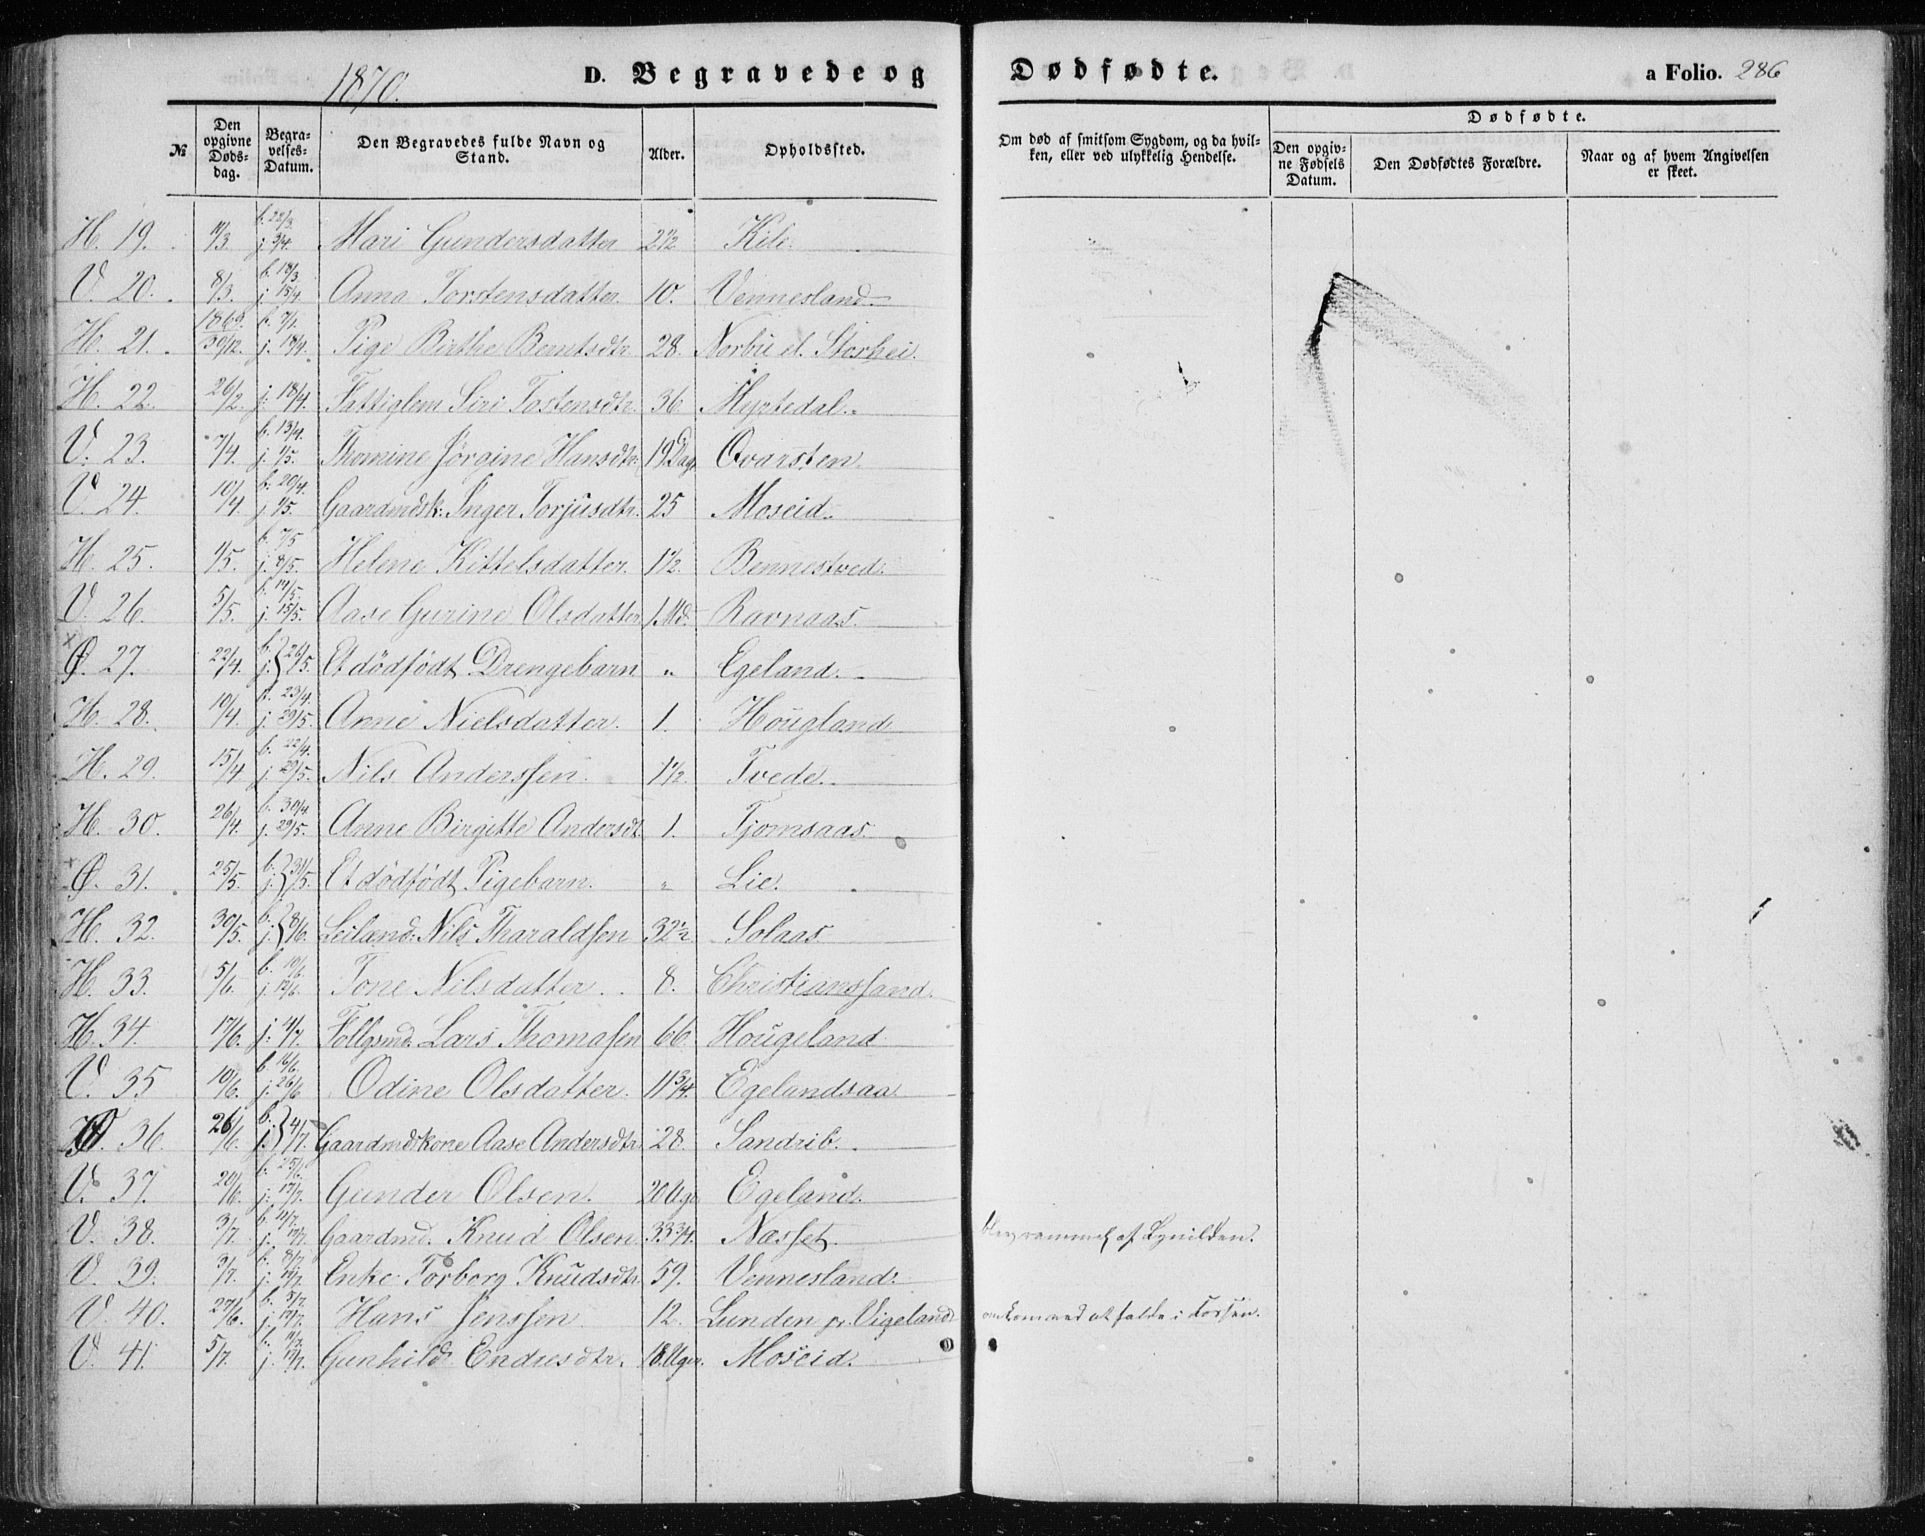 1870.
D. Begravede og Dødfødte. a Folio. 286
№ Den opgivne Døds-dag. Begra-velses-Datum. Den Begravedes fulde Navn og Stand. Alder. Opholdssted. Om død af smitsom Sygdom, og da hvil-ken, eller ved ulykkelig Hendelse. Dødfødte. Den opgiv-ne Fødsels Datum. Den Dødfødtes Forældre. Naar og af hvem Angivelsen er skeet.
H. 19. b. 22/3. j. 3/4. Mari Gundersdatter 2 1/2 Kile.
V. 20. 8/3. b. 18/3. j. 15/4. Anna Torstensdatter. 10. Vennesland
H. 21. 1869. 30/12. b. 7/1. j. 18/4. Pige Birthe Berntsdtr. 28. Norbu el. Storhei.
H. 22. 26/2. j. 18/4. Fattiglem Siri Tostensdtr. 36
V. 23. 7/4. b. 13/4. j. 1/5. Thomine Jörgine Hansdtr. 19 Dage Qvarsten.
V. 24. 10/4. b. 20/4. j. 1/5. Gaardmdsk: Inger Torjusdtr. 25 Moseid.
H. 25. 1/5. b. 7/5 j. 8/5. Helene Kittelsdatter. 1 1/2. Bennestved.
V. 26. 5/5. b. 14/5. j. 15/5. Aase Gurine Olsdatter 1 Md. Ravnaas.
Ø. 27. 22/4. b. j. } 26/5. Et dödfödt Drengebarn " Egeland.
H. 28. 10/4. b. 23/4. j. 29/5. Anne Nielsdatter. 1. Hougland
H. 29. 15/4 b. 22/4. j. 29/5. Nils Anderssen. 1 1/2. Tvede.
H. 30. 26/4. b. 30/4. j. 29/5. Anne Birgitte Andersdt. 1. Tjomsaas.
Ø. 31. 25/5. b. j. } 31/5. Et dödfödt Pigebarn. " Lie.
H. 32. 30/5. b. j. } 8/6. Leilænd. Nils Tharaldsen 32 1/2 Solaas
H. 33. 5/6. b. 10/6. j. 12/6. Tone Nilsdatter. 8. Christianssand.
H. 34. 17/6. j. 4/7. Follgsmd. Lars Thomasen 66 Hougeland
V. 35 10/6. b. 16/6. j. 26/6 Odine Olsdatter. 11 3/4. Egelandsaa
Ø. 36. 26/6. b. j. } 4/7. Gaardmdskone Aase Andersdtr. 28. Sandrib.
V. 37. 20/6. b. 25/6. j. 17/7. Gunder Olsen. 20 Uger Egeland.
V. 38. 3/7. b. 11/7. j. 17/7. Gaardmd. Knud Olsen. 33 3/4. Næsset. blev rammet af Lynilden.
V. 39. 3/7. b. 8/7. j. 17/7. Enke Torborg Knudsdtr. 59. Vennesland.
V. 40. 27/6. b. 5/7. j. 17/7. Hans Jenssen 12. Lunden pr. Vigeland omkom ved at falde i Fossen.
V. 41. 5/7. b. 11/7. j. 17/7. Gunhild Endresdtr. 18 Uger. Moseid.